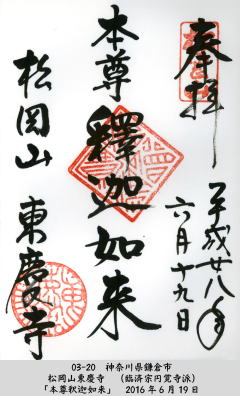 奉拝
平成廿八年
六月十九日
本尊
釋迦如来
松岡山
東慶寺
03-20 神奈川県鎌倉市
松岡山東慶寺 (臨済宗円覚寺派)
「本尊釈迦如来」 2016年6月19日